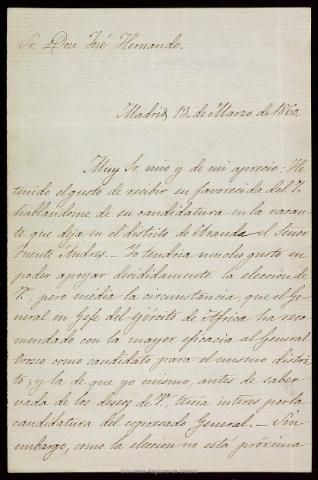 Sr. Don José Hernando.
Madrid, 13 de Marzo de 1860.
Muy Sr. mio y de mi aprecio: He
tenido el gusto de recibir su favorecida del 7.
hablandome de su candidatura en la vacan-
te que deja en el distrito de Aranda el Señor
Fuente Andres. – Yo tendria mucho gusto en
poder apoyar decididamente la eleccion de
V. pero média la circunstancia, que el Ge-
neral en Gefe del ejército de Africa ha reco-
mendado con la mayor eficacia al General
Orozco como candidato para el mismo distri-
to, y la de que yo mismo, antes de saber
nada de los deseos de V. tenia interes por la
candidatura del espresado General. – Sin
embargo, como la eleccion no está próxima